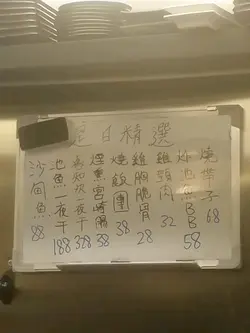 是日精選
燒帶子 68
炸池魚BB 58
雞頸肉 32
雞胸脆骨 28
燒飯團 38
煙熏宮崎腸 38
喜知次一夜干
池魚一夜干 188
沙甸魚 88